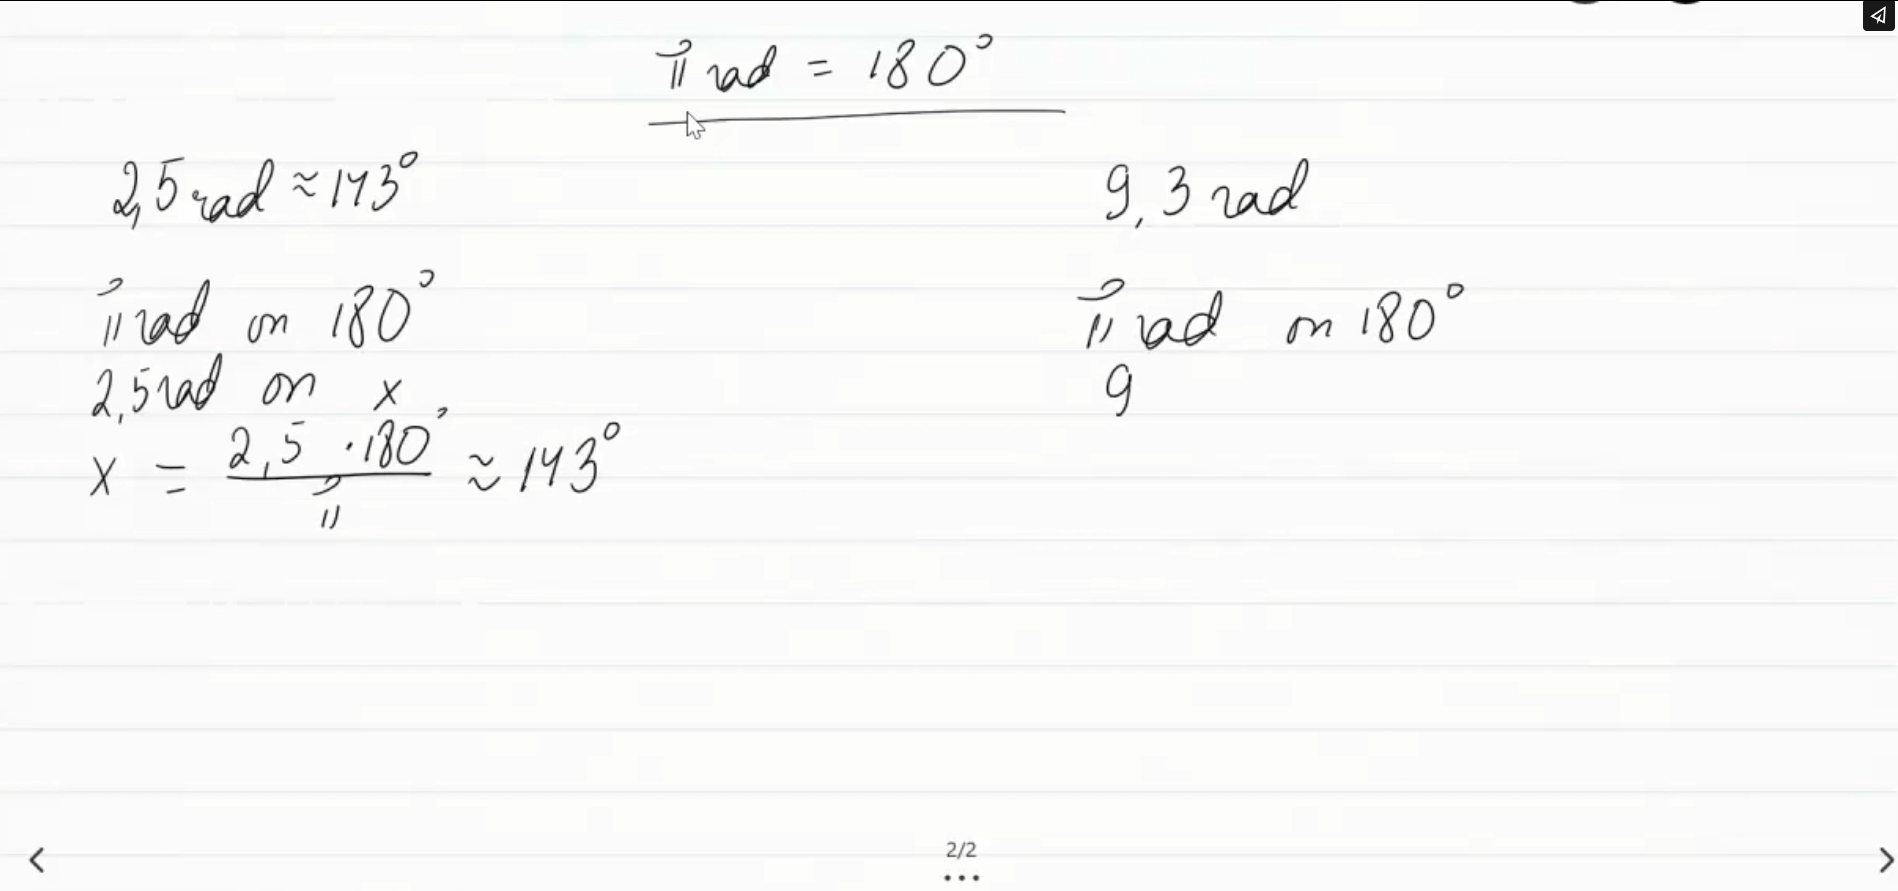 π rad = 180°
2,5 rad ≈ 143°
π rad on 180°
2,5 rad on x
x = 2,5 · 180° / π ≈ 143°
9,3 rad
π rad on 180°
9
2/2